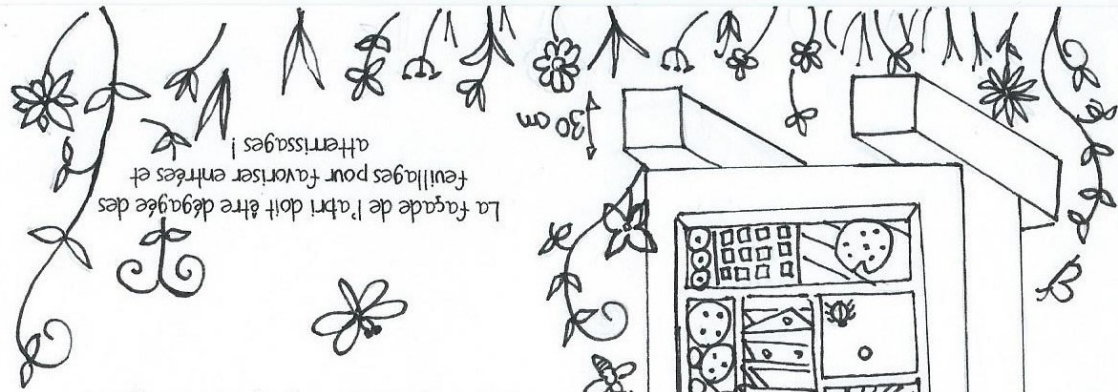 La façade de l'abri doit être dégagée des
feuillages pour favoriser entrées et
atterrissages !
30 cm